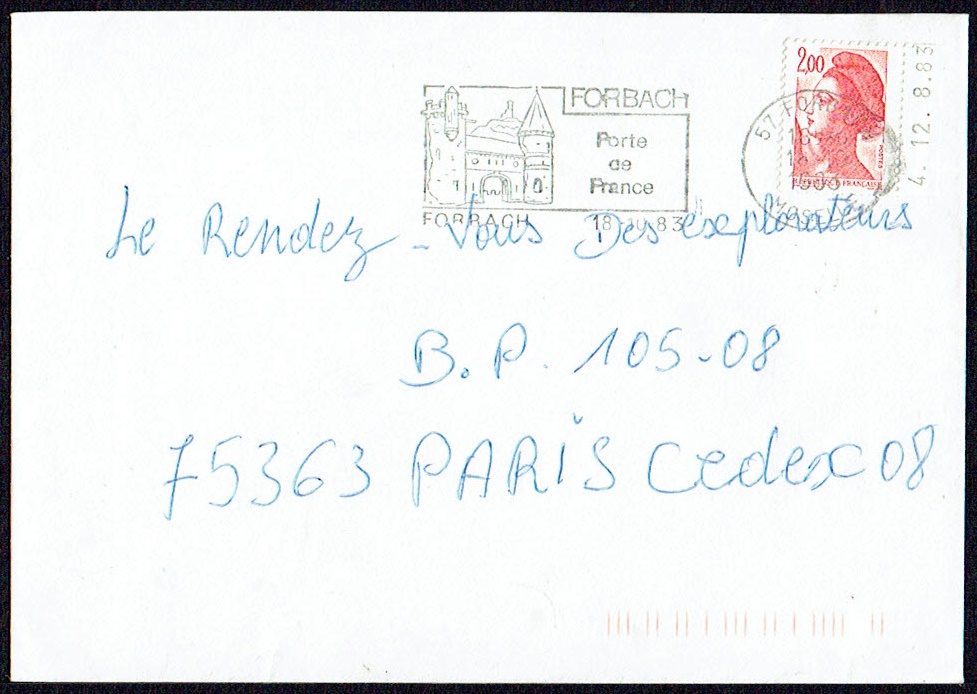 FORBACH
Porte
de
France
FORBACH 18 83
2,00
POSTES
REPUBLIQUE FRANÇAISE
57 FORBACH
MOSELLE
4. 12. 8.83
Le Rendez-Vous Des explorateurs
B.P. 105-08
75363 PARIS Cedex 08